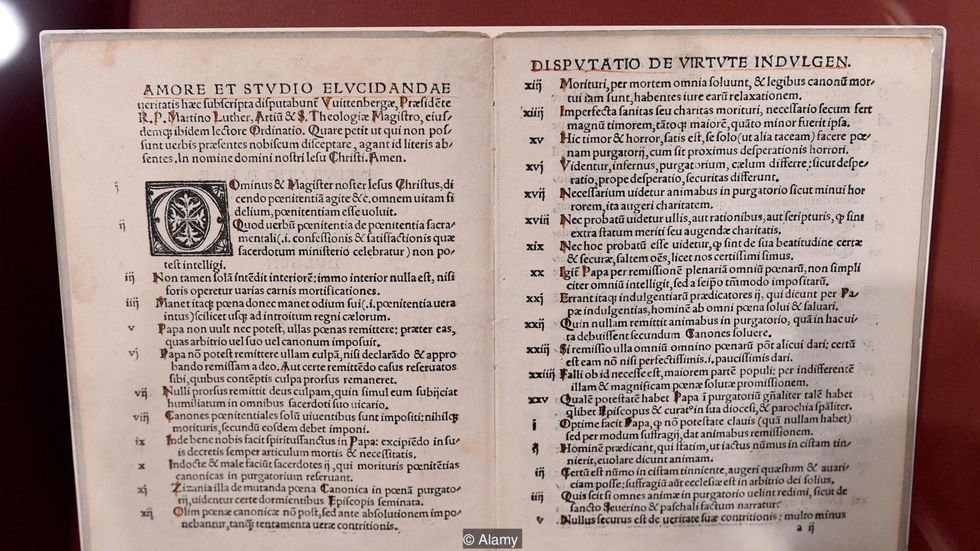 AMORE ET STVDIO ELVCIDANDAE
ueritatis hæc subscripta disputabunť Vuittenbergæ, Præsidẽte
R. P. Martino Luther, Artiũ & S. Theologiæ Magistro, eius/
demq; ibidem lectore Ordinatio. Quare petit ut qui non pos/
sunt uerbis præsentes nobiscum disceptare, agant id literis ab/
sentes. In nomine domini nostri Iesu Christi. Amen.
i
DOminus & Magister noster Iesus Christus, di
cendo pœnitentiã agite &c, omnem uitam fi
delium, pœnitentiam esse uoluit.
ij Quod uerbũ pœnitentia de pœnitentia sacra/
mentali (.i. confessionis & satisfactionis quæ
sacerdotum ministerio celebratur) non po/
test intelligi.
iij Non tamen solã intẽdit interiorẽ: immo interior nulla est, nisi
foris operetur uarias carnis mortificationes.
iiij Manet itaq; pœna donec manet odium sui (.i. pœnitentia uera
intus) scilicet usq; ad introitum regni cælorum.
v Papa non uult nec potest, ullas pœnas remittere: præter eas,
quas arbitrio uel suo uel canonum imposuit.
vj Papa nõ potest remittere ullam culpã, nisi declarãdo & appro
bando remissam a deo. Aut certe remittẽdo casus reseruatos
sibi, quibus contẽptis culpa prorsus remaneret.
vij Nulli prorsus remittit deus culpam, quin simul eum subijciat
humiliatum in omnibus sacerdoti suo uicario.
viij Canones pœnitentiales solũ uiuentibus sunt impositi: nihilq;
morituris, secundũ eosdem debet imponi.
ix Inde bene nobis facit spiritussanctus in Papa: excipiẽdo in su/
is decretis semper articulum mortis & necessitatis.
x Indocte & male faciũt sacerdotes ij, qui morituris pœnitẽtias
canonicas in purgatorium reseruant.
xj Zizania illa de mutanda pœna Canonica in pœnã purgato/
rij, uidentur certe dormientibus Episcopis seminata.
xij Olim pœnæ canonicæ nõ post, sed ante absolutionem impo/
nebantur, tanq̃ tentamenta ueræ contritionis.
DISPVTATIO DE VIRTVTE INDVLGEN.
xiij Morituri, per mortem omnia soluunt, & legibus canonũ mor/
tui iam sunt, habentes iure earũ relaxationem.
xiiij Imperfecta sanitas seu charitas morituri, necessario secum fert
magnũ timorem, tãtoq; maiorẽ, quãto minor fuerit ipsa.
xv Hic timor & horror, satis est, se solo (ut alia taceam) facere pœ/
nam purgatorij, cum sit proximus desperationis horrori.
xvj Videntur, infernus, purgatorium, cælum differre: sicut despe/
ratio, prope desperatio, securitas differunt.
xvij Necessarium uidetur animabus in purgatorio sicut minui hor
rorem, ita augeri charitatem.
xviij Nec probatũ uidetur ullis, aut rationibus, aut scripturis, q̃ sint
extra statum meriti seu augendæ charitatis.
xix Nec hoc probatũ esse uidetur, q̃ sint de sua beatitudine certæ
& securæ, saltem oẽs, licet nos certissimi simus.
xx Igiẽ Papa per remissionẽ plenariã omniũ pœnarũ, non simpli
citer omniũ intelligit, sed a seipso tm̃modo impositarũ.
xxj Errant itaq; indulgentiarũ prædicatores ij, qui dicunt per Pa/
pæ indulgentias, hominẽ ab omni pœna solui & saluari.
xxij Quin nullam remittit animabus in purgatorio, quã in hac ui/
ta debuissent secundum Canones soluere.
xxiij Si remissio ulla omniũ omnino pœnarũ põt alicui dari; certũ
est eam nõ nisi perfectissimis .i. paucissimis dari.
xxiiij Falli ob id necesse est, maiorem partẽ populi: per indifferentẽ
illam & magnificam pœnæ solutæ promissionem.
xxv Qualẽ potestatẽ habet Papa ĩ purgatoriũ gñaliter talẽ habet
q̃libet Episcopus & curatꝰ in sua diocesi, & parochia sp̃aliter.
i Optime facit Papa, q̃ nõ potestate clauis (quã nullam habet)
sed per modum suffragij, dat animabus remissionem.
ij Hominẽ prædicant, qui statim, ut iactus nũmus in cistam tin/
nierit, euolare dicunt animam.
iij Certũ est nũmo in cistam tinniente, augeri quæstum & auari/
ciam posse: suffragiũ aũt ecclesiæ est in arbitrio dei solius.
iiij Quis scit si omnes animæ in purgatorio uelint redimi, sicut de
sancto Seuerino & paschali factum narratur.
v Nullus securus est de ueritate suæ contritionis: multo minus
a ij
© Alamy